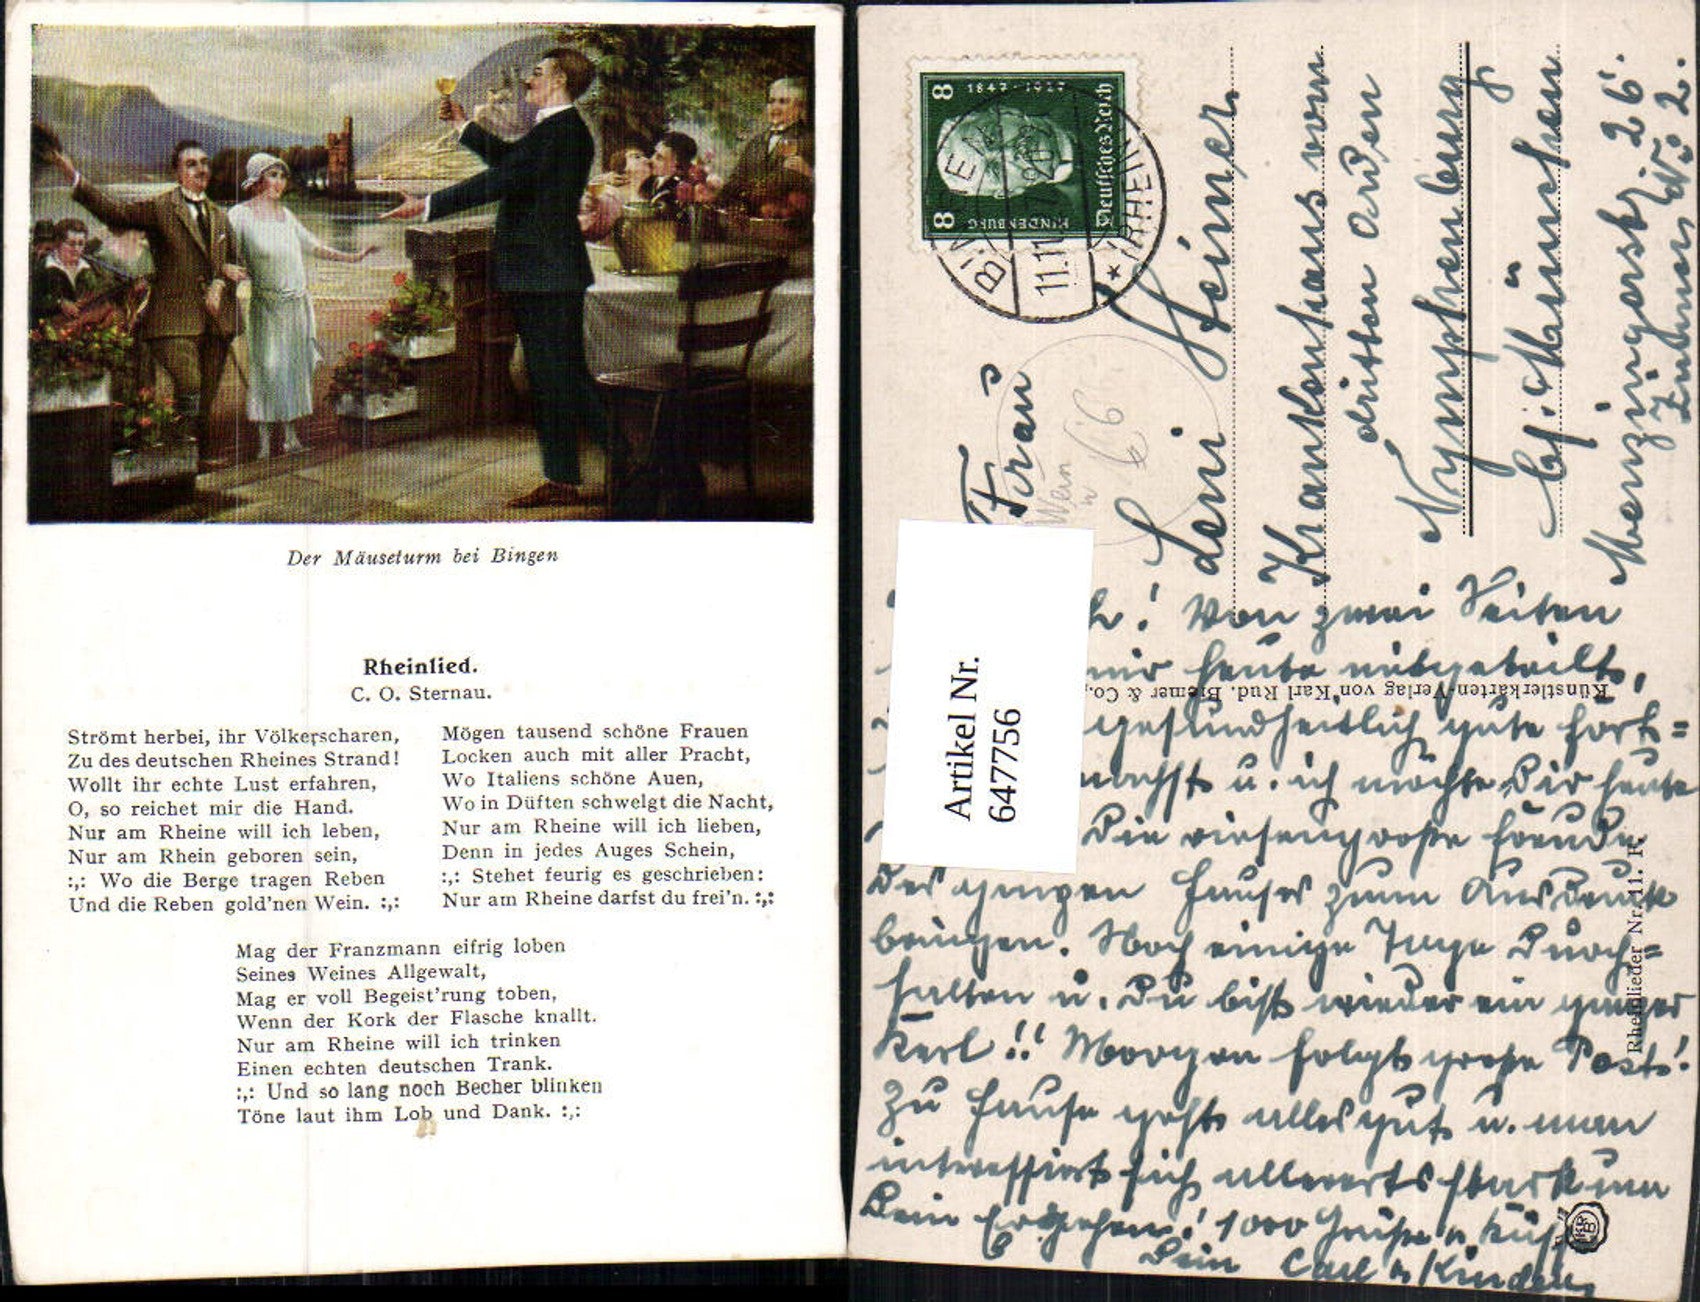 Der Mäuseturm bei Bingen
Rheinlied.
C. O. Sternau.
Strömt herbei, ihr Völkerscharen,
Zu des deutschen Rheines Strand!
Wollt ihr echte Lust erfahren,
O, so reichet mir die Hand.
Nur am Rheine will ich leben,
Nur am Rhein geboren sein,
:,: Wo die Berge tragen Reben
Und die Reben gold'nen Wein. :,:
Mögen tausend schöne Frauen
Locken auch mit aller Pracht,
Wo Italiens schöne Auen,
Wo in Düften schwelgt die Nacht,
Nur am Rheine will ich lieben,
Denn in jedes Auges Schein,
:,: Stehet feurig es geschrieben:
Nur am Rheine darfst du frei'n. :,:
Mag der Franzmann eifrig loben
Seines Weines Allgewalt,
Mag er voll Begeist'rung toben,
Wenn der Kork der Flasche knallt.
Nur am Rheine will ich trinken
Einen echten deutschen Trank.
:,: Und so lang noch Becher blinken
Töne laut ihm Lob und Dank. :,:
8 1847-1927 8
Deutsches Reich
HINDENBURG
BINGEN
(RHEIN)
11.11
Frau
Leni Steiner.
Krankenhaus vom
dritten Orden
Nymphenburg
b/. München
Menzingerstr. 26.
Zimmer No 2.
Wein
Artikel Nr.
647756
Künstlerkarten-Verlag von Karl Rud. Bremer & Co.,
Rheinlieder Nr. 11. F.
! Von zwei Seiten
mir heute mitgeteilt,
gesundheitlich gute Fort=
machst u. ich möchte Dir heute
die riesengroße Freude
des ganzen Hauses zum Ausdruck
bringen. Noch einige Tage Durch=
halten u. Du bist wieder ein ganzer
Kerl!! Morgen folgt große Post!
Zu Hause geht alles gut u. man
interessiert sich allerorts stark um
Dein Ergehen! 1000 Grüße u. Küsse
Dein Carl u. Kinder